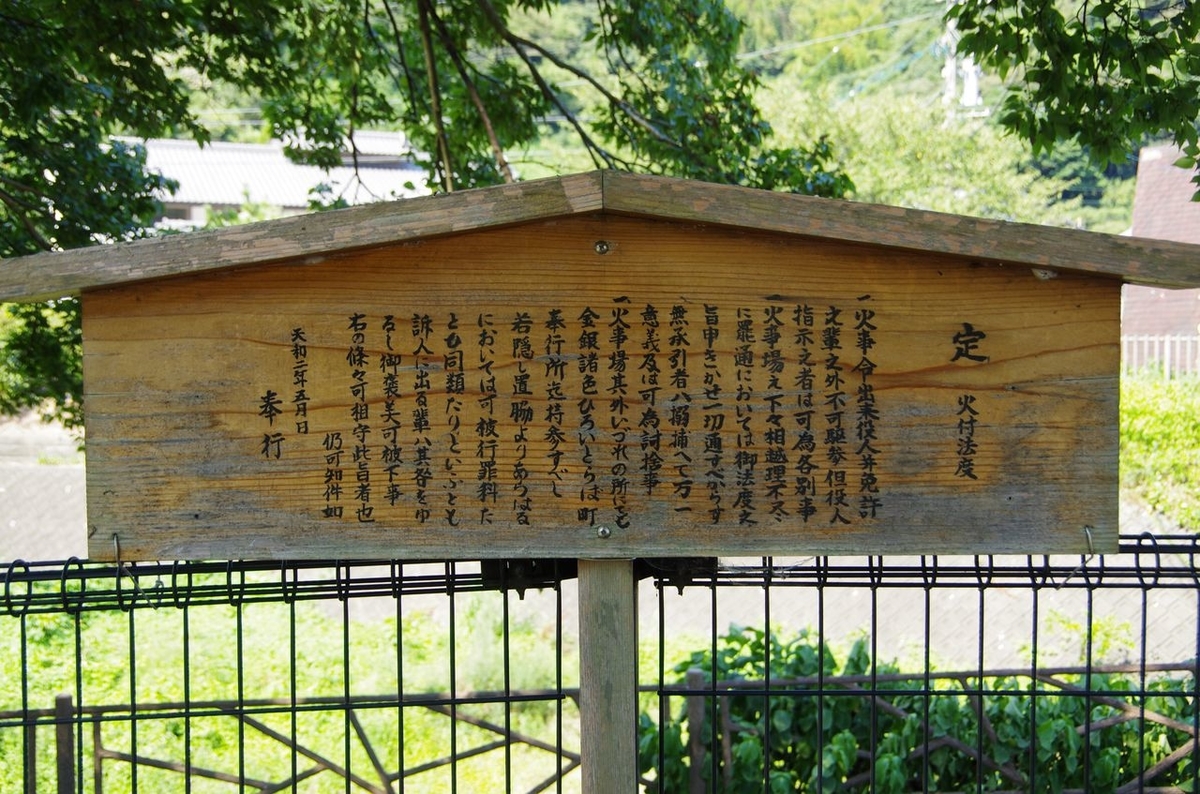 定
火付法度
一火事令出来役人并免許
之輩之外不可駆参但役人
指示之者は可為各別事
一火事場え下々相越理不尽
に罷通においては御法度之
旨申きかせ一切通すべからす
無承引者ハ搦捕へて万一
意義及は可為討捨事
一火事場其外いつれの所にても
金銀諸色ひろいとらは町
奉行所迄持参すべし
若隠し置脇よりあらはる
においては可被行罪科た
とひ同類たりといふとも
訴人に出る輩ハ其咎をゆ
るし御褒美可被下事
右の條々可相守此旨者也
仍可知件如
天和二年五月日
奉行